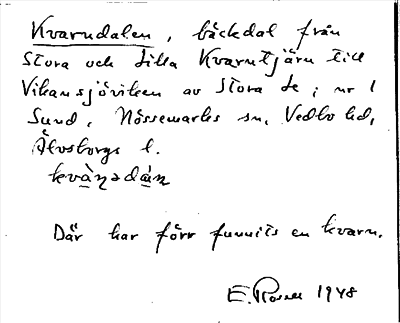 Kvarndalen, bäckdal från
Stora och Lilla Kvarntjärn till
Vikansjöviken av Stora Le; nr 1
Sund, Nössemarks sn, Vedbo hd,
Älvsborgs l.
Där har förr funnits en kvarn.
E. 1948